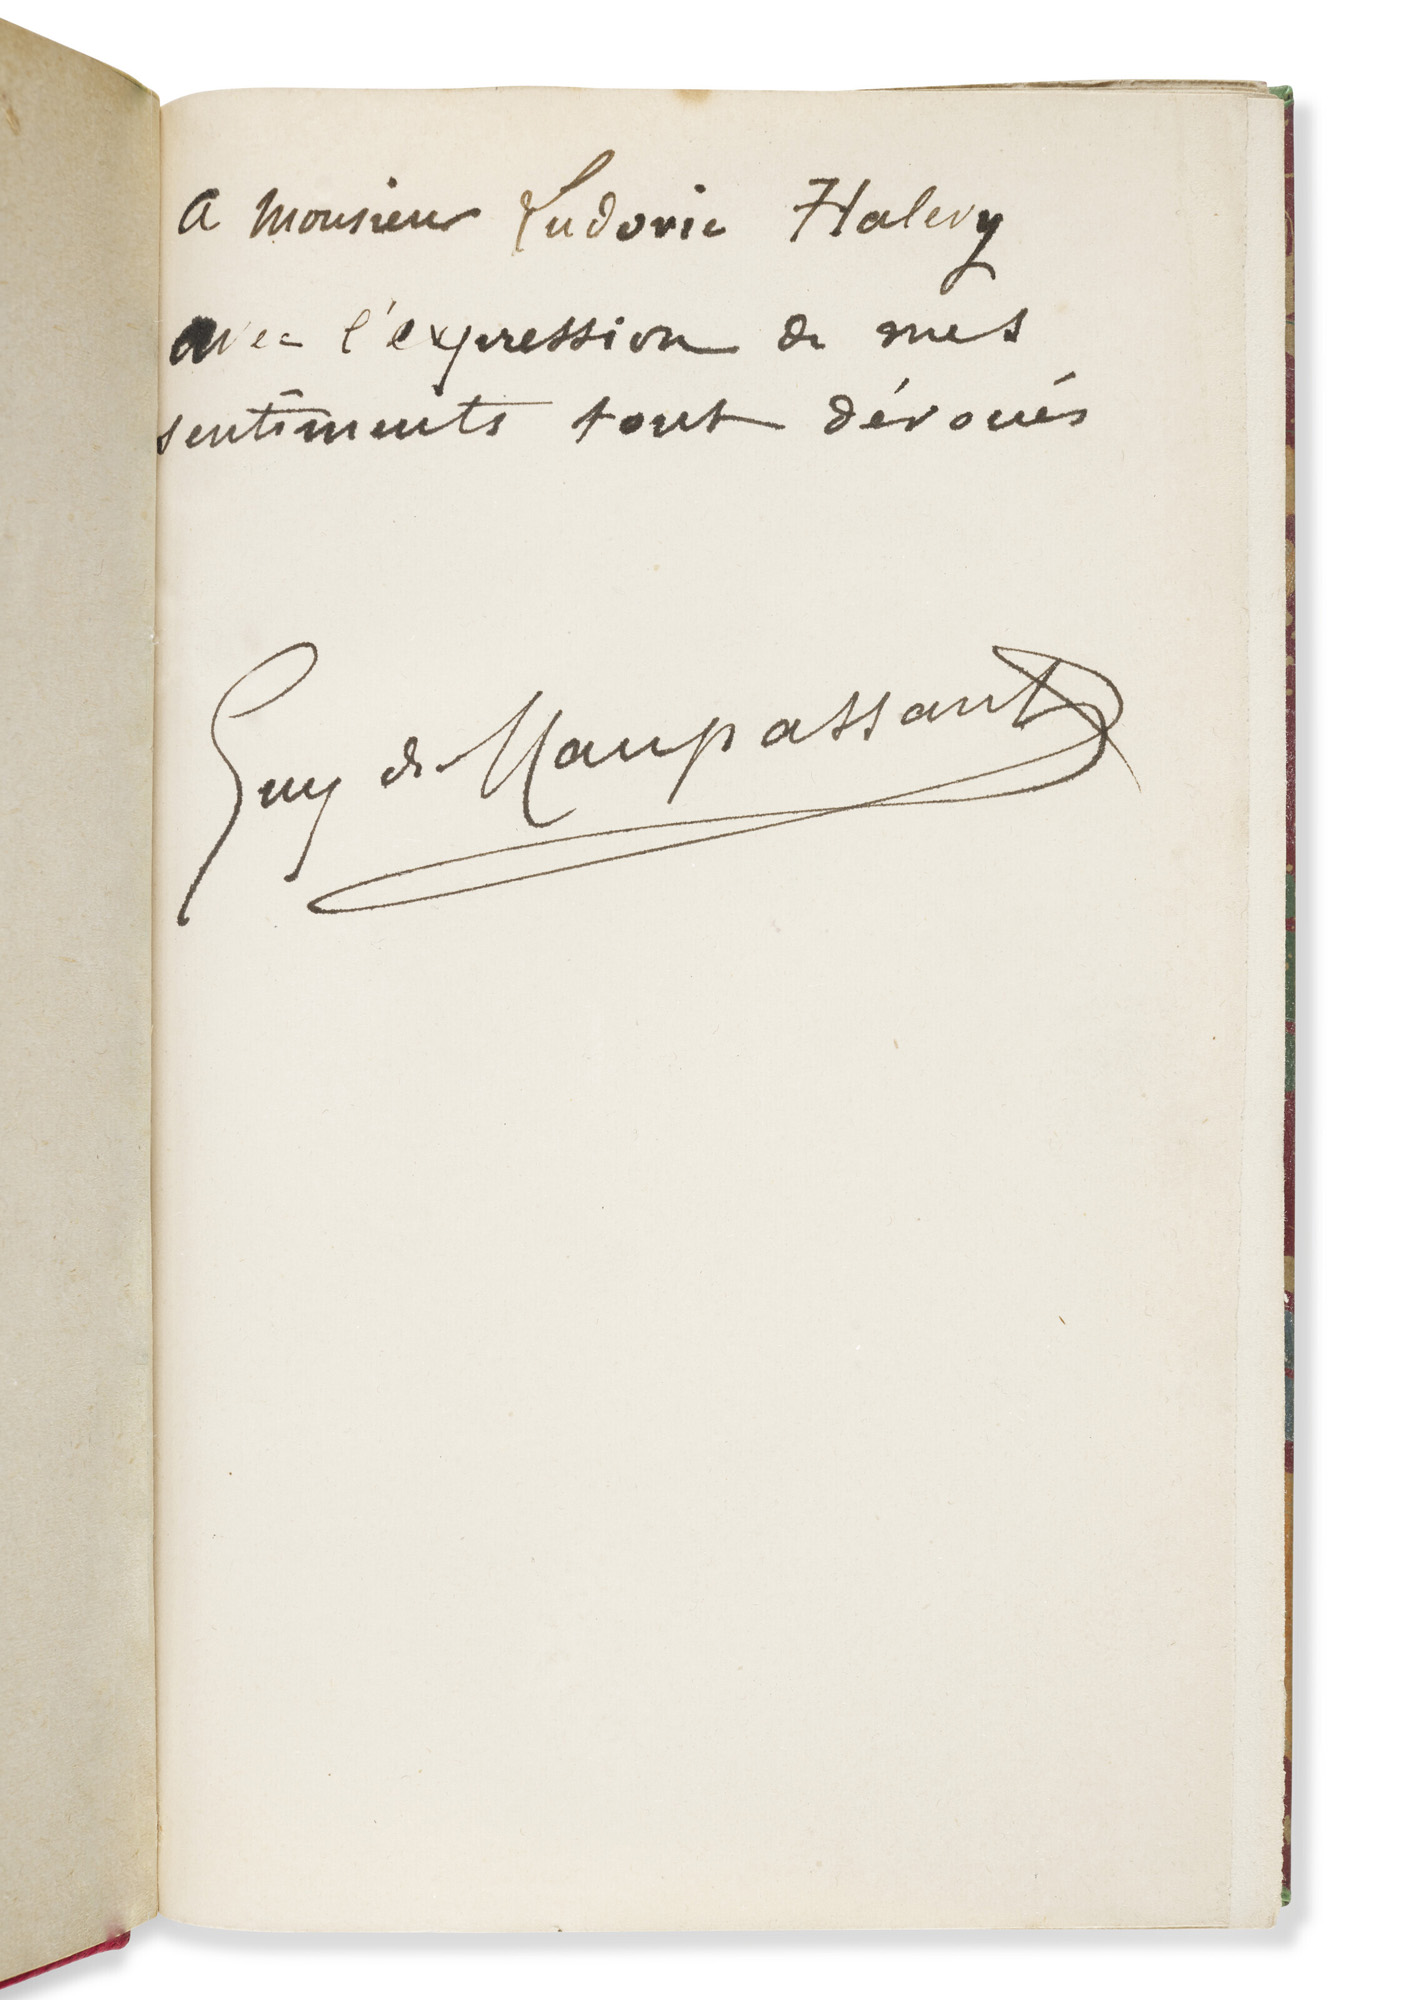 a monsieur Ludovic Halevy
avec l'expression de mes
sentiments tout dévoués
Guy de Maupassant